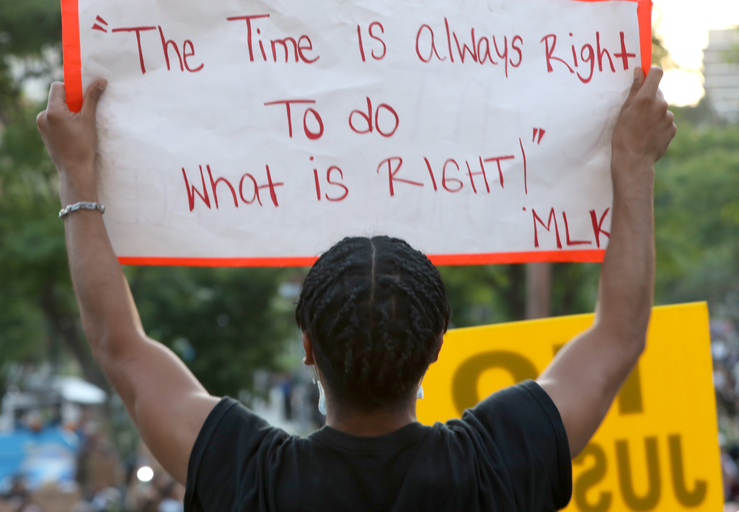 "The Time is always Right
To do
What is RIGHT!"
MLK